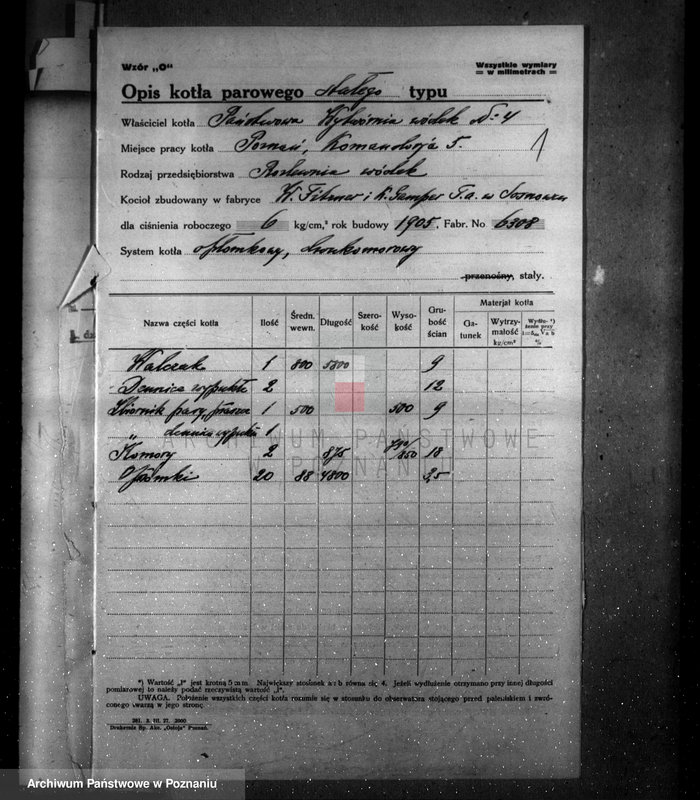 Wzór „O"
Wszystkie wymiary
= w milimetrach =
Opis kotła parowego stałego typu
Właściciel kotła Państwowa Wytwórnia wódek № 4
Miejsce pracy kotła Poznań, Komandorja 5.
1
Rodzaj przedsiębiorstwa Rozlewnia wódek
Kocioł zbudowany w fabryce W. Fitzner i K. Gamper T.a. w Sosnowcu
dla ciśnienia roboczego 6 kg/cm,² rok budowy 1905, Fabr. No 6308
System kotła opłomkowy, dwukomorowy
przenośny, stały.
Nazwa części kotła Ilość Średn. wewn. Długość Szerokość Wysokość Grubość ścian Materjał kotła
Gatunek Wytrzymałość kg/cm² Wydłużenie przy %
Walczak 1 800 5800 9
Dennica wypukła 2 12
Zbiornik pary, płaszcz 1 500 500 9
„ dennica wypukła 1
Komory 2 875 790/850 18
Opłomki 20 88 4800 3,5
ARCHIWUM PAŃSTWOWE
W POZNANIU
*) Wartość „l" jest krotną 5 mm. Największy stosunek a : b równa się 4. Jeżeli wydłużenie otrzymano przy innej długości
pomiarowej to należy podać rzeczywistą wartość „l".
UWAGA. Położenie wszystkich części kotła rozumie się w stosunku do obserwatora stojącego przed paleniskiem i zwróconego twarzą w jego stronę.
281. 3. III. 27. 2000
Drukarnia Sp. Akc. „Ostoja" Poznań.
Archiwum Państwowe w Poznaniu